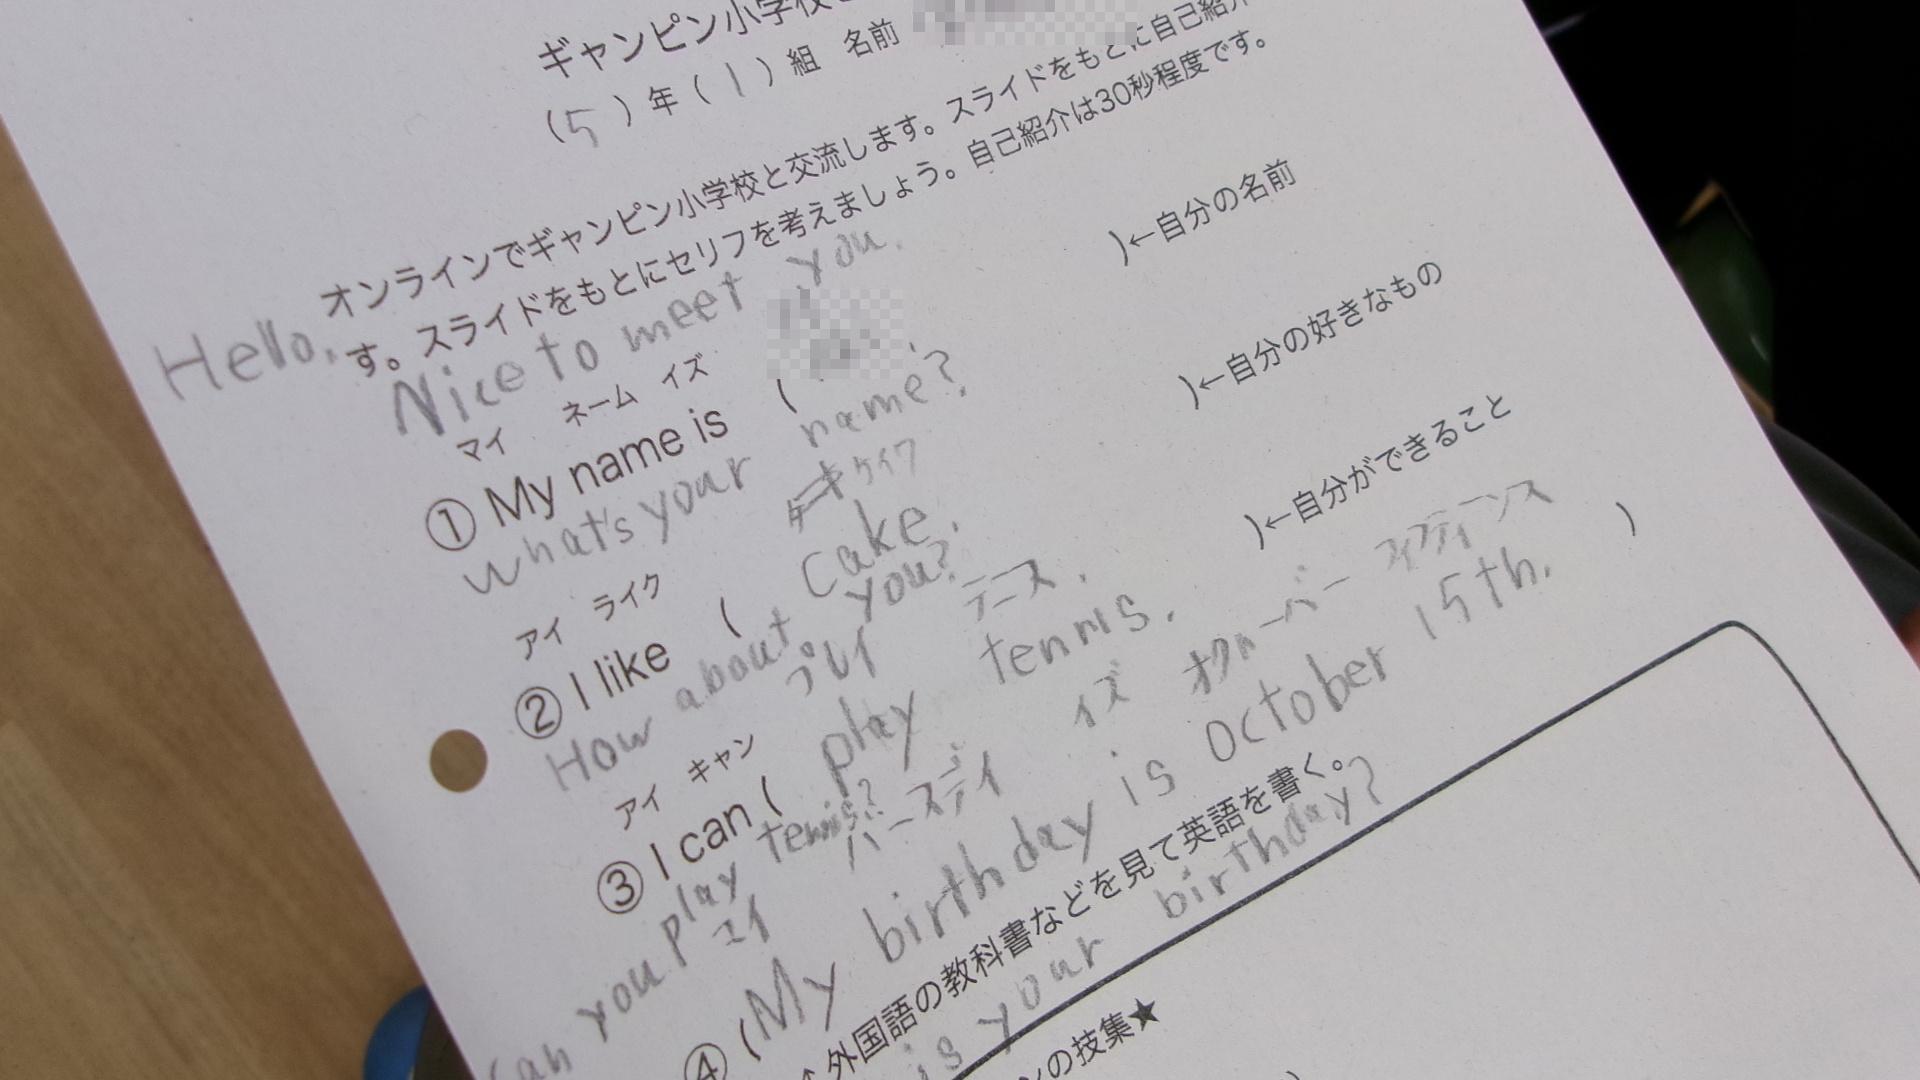 ギャンピン小学校
(5)年(1)組 名前
オンラインでギャンピン小学校と交流します。スライドをもとに自己紹介
す。スライドをもとにセリフを考えましょう。自己紹介は30秒程度です。
Hello. Nice to meet you.
マイ ネーム イズ
① My name is ( )←自分の名前
What's your name?
アイ ライク ケイク
② I like ( cake. )←自分の好きなもの
How about you?
アイ キャン プレイ テニス.
③ I can ( play tennis. )←自分ができること
Can you play tennis?
マイ バースデイ イズ オクトーバー フィフティーンス
④ (My birthday is October 15th. )
↑外国語の教科書などを見て英語を書く。
is your birthday?
ンの技集★